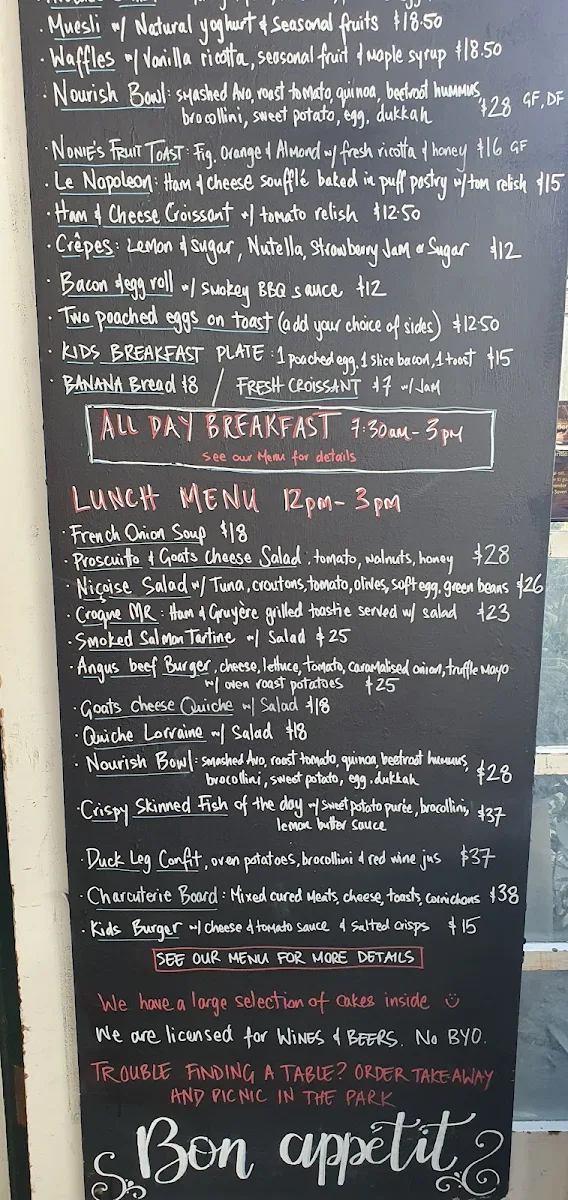 · Muesli w/ Natural yoghurt & Seasonal fruits $18.50
· Waffles w/ Vanilla ricotta, seasonal fruit & maple syrup $18.50
· Nourish Bowl: smashed Avo, roast tomato, quinoa, beetroot hummus,
brocollini, sweet potato, egg, dukkah $28 GF, DF
· NONIE'S FRUIT TOAST: Fig, Orange & Almond w/ fresh ricotta & honey $16 GF
· Le Napoleon: Ham & cheese soufflé baked in puff pastry w/ tom relish $15
· Ham & Cheese Croissant w/ tomato relish $12.50
· Crêpes: Lemon & sugar, Nutella, Strawberry Jam or Sugar $12
· Bacon & egg roll w/ Smokey BBQ sauce $12
· Two poached eggs on toast (add your choice of sides) $12.50
· KIDS BREAKFAST PLATE: 1 poached egg, 1 slice bacon, 1 toast $15
· BANANA Bread $8 / FRESH CROISSANT $7 w/ Jam
ALL DAY BREAKFAST 7:30am - 3pm
see our Menu for details
LUNCH MENU 12pm - 3pm
· French Onion Soup $18
· Proscuitto & Goats Cheese Salad, tomato, walnuts, honey $28
· Niçoise Salad w/ Tuna, croutons, tomato, olives, soft egg, green beans $26
· Croque MR: Ham & Gruyère grilled toastie served w/ salad $23
· Smoked Salmon Tartine w/ Salad $25
· Angus beef Burger, cheese, lettuce, tomato, caramalised onion, truffle mayo
w/ oven roast potatoes $25
· Goats cheese Quiche w/ Salad $18
· Quiche Lorraine w/ Salad $18
· Nourish Bowl: smashed Avo, roast tomato, quinoa, beetroot hummus,
brocollini, sweet potato, egg, dukkah $28
· Crispy Skinned Fish of the day w/ sweet potato purée, brocollini,
lemon butter sauce $37
· Duck Leg Confit, oven potatoes, brocollini & red wine jus $37
· Charcuterie Board: Mixed cured meats, cheese, toasts, cornichons $38
· Kids Burger w/ cheese & tomato sauce & salted crisps $15
SEE OUR MENU FOR MORE DETAILS
We have a large selection of cakes inside
We are licensed for WINES & BEERS. No BYO.
TROUBLE FINDING A TABLE? ORDER TAKEAWAY
AND PICNIC IN THE PARK
Bon appétit